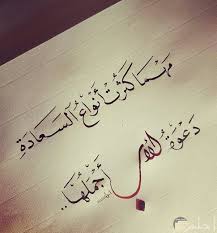 مهما كثرت أنواع السعادة
دعوة الأب أجملها..